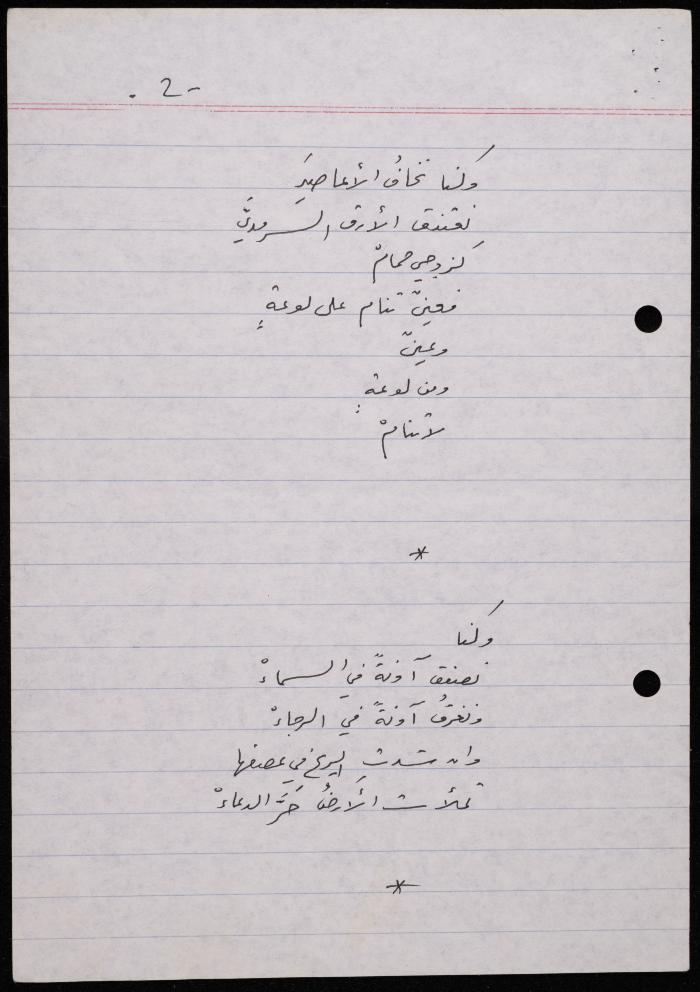 -2.
وكنا نخافُ الأعاصيرَ
نقتنق الأرق السرمديَّ
كزوجي حمامْ
فعينٌ تنام على لوعةٍ
وعينٌ
ومن لوعةٍ
لا تنامْ
*
وكنا
نصفق آونةً في السماءْ
ونغرقُ آونةً في الرجاءْ
وان شدت الريح في عصفها
تملأت الأرضُ حَرَّ الدعاءْ
*